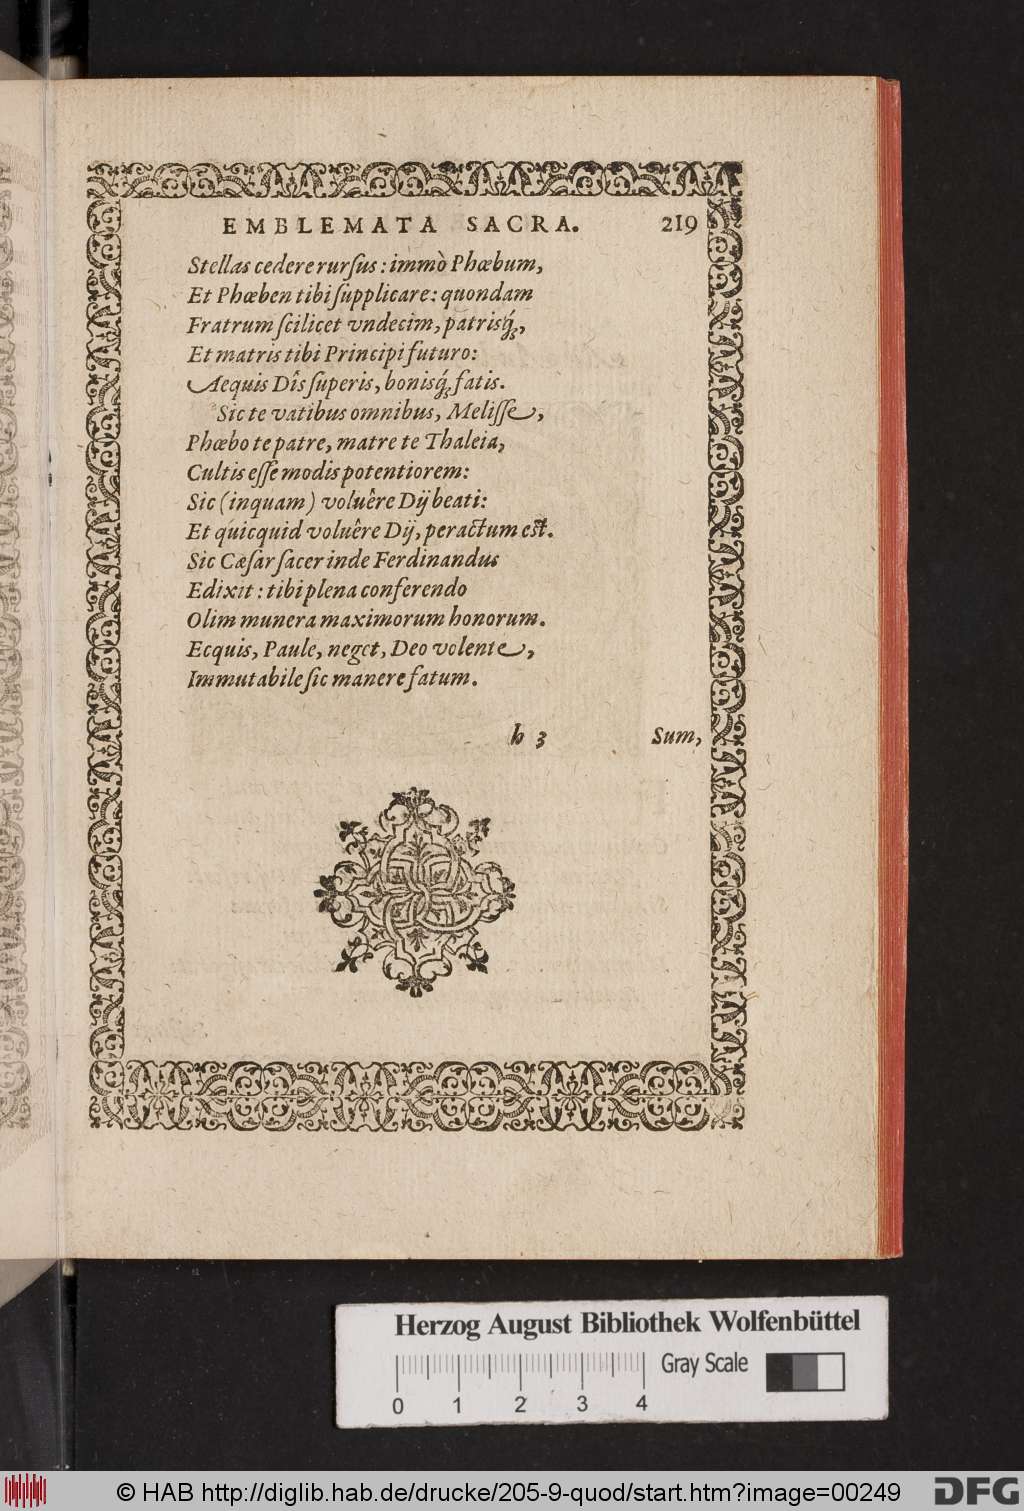 EMBLEMATA SACRA. 219
Stellas cedere rurſus: immò Phœbum,
Et Phœben tibi ſupplicare: quondam
Fratrum ſcilicet vndecim, patrisq́;,
Et matris tibi Principi futuro:
Aequis Dîs ſuperis, bonisq́; fatis.
Sic te vatibus omnibus, Meliſſe,
Phœbo te patre, matre te Thaleia,
Cultis eſſe modis potentiorem:
Sic (inquam) voluêre Dij beati:
Et quicquid voluêre Dij, peractum est.
Sic Cæſar ſacer inde Ferdinandus
Edixit: tibi plena conferendo
Olim munera maximorum honorum.
Ecquis, Paule, neget, Deo volente,
Immutabile ſic manere fatum.
h 3 Sum,
Herzog August Bibliothek Wolfenbüttel
Gray Scale
0 1 2 3 4
© HAB http://diglib.hab.de/drucke/205-9-quod/start.htm?image=00249
DFG